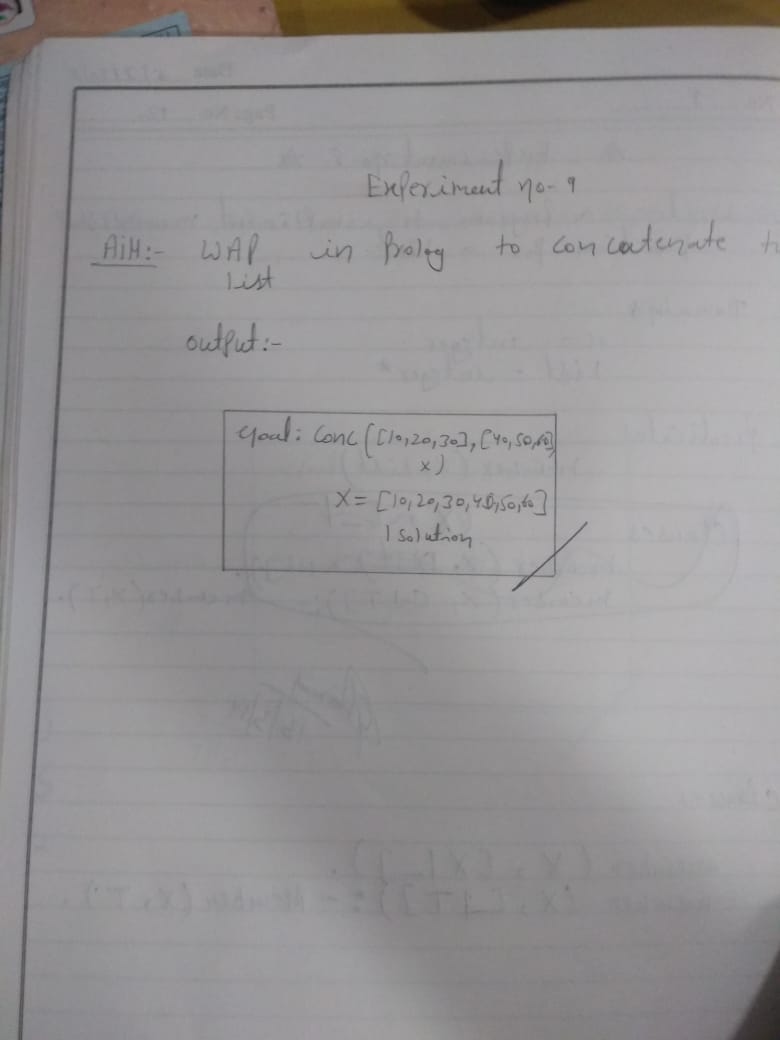 Experiment no-9
AiM:- WAP in Prolog to concatenate
list
output:-
Goal: conc([10,20,30],[40,50,60]
x)
X=[10,20,30,40,50,60]
1 solution